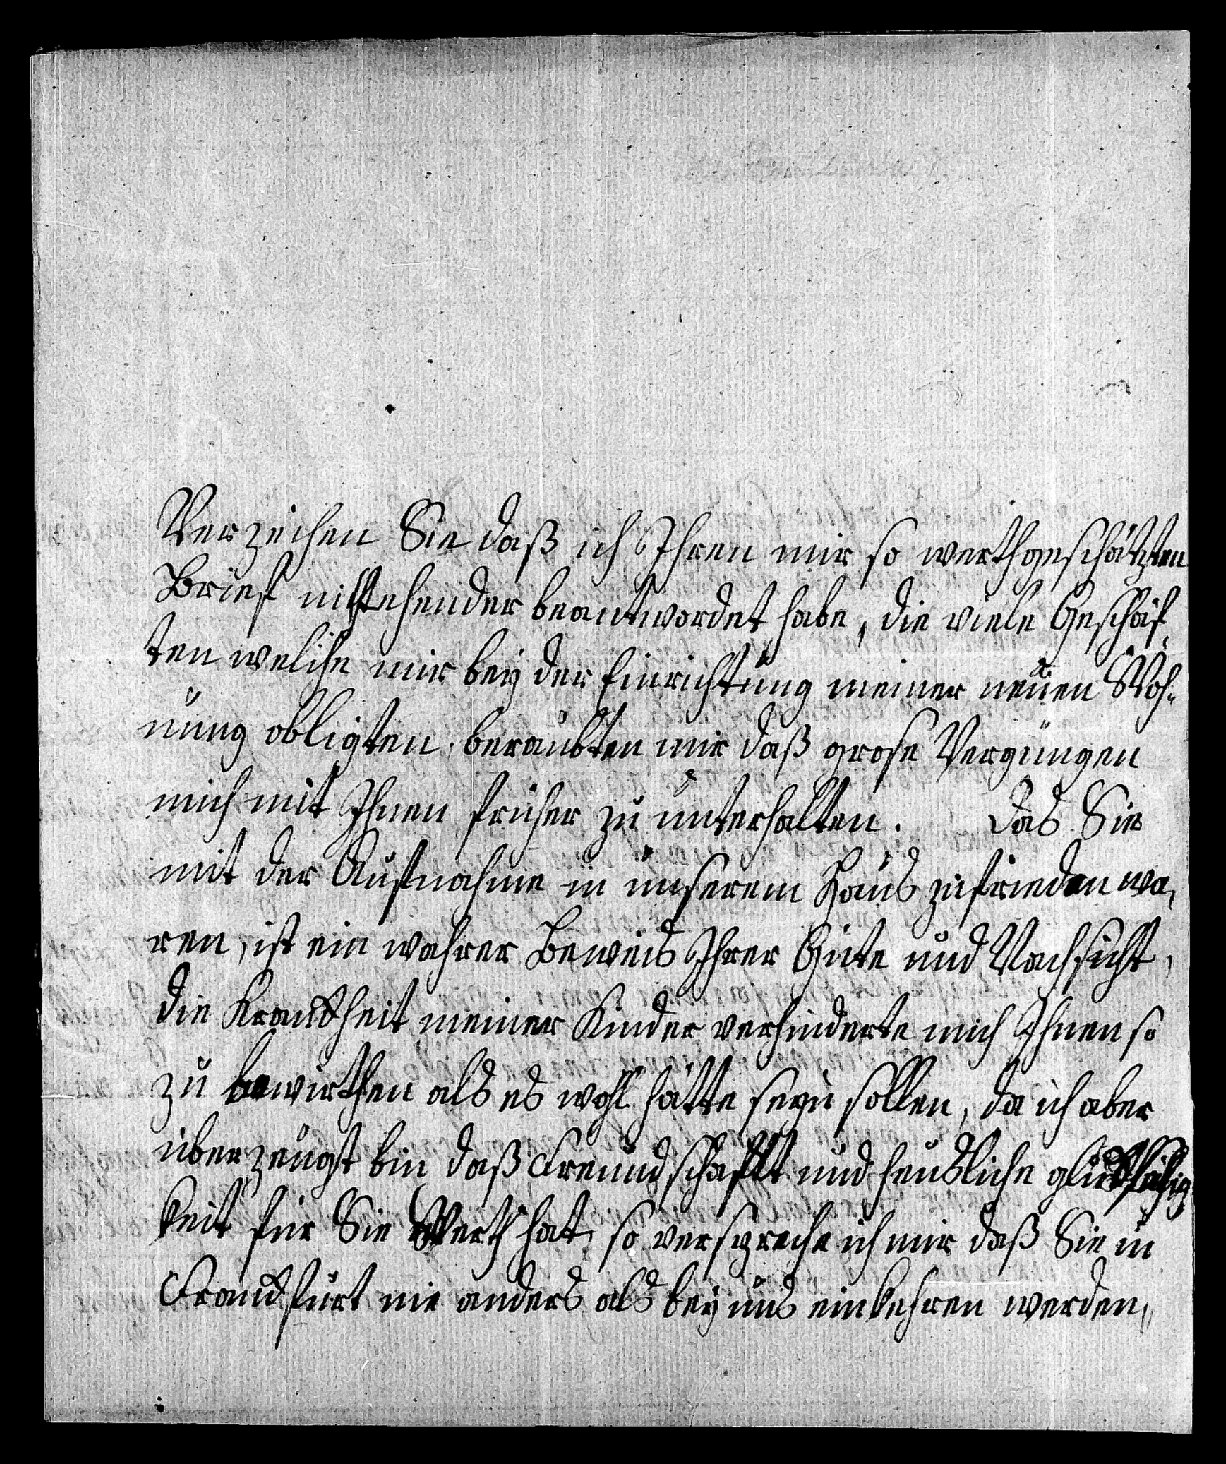 Verzeihen Sie daß ich Ihren mir so werthgeschätzten
Brief nicht ehender beantwordet habe, die viele Geschäf-
ten welche mir bey der Einrichtung meiner neuen Woh-
nung obligten, beraubten mir daß grose Vergnügen
mich mit Ihnen früher zu unterhalten. Das Sie
mit der Aufnahme in unserem Haus zufrieden wa,
ren, ist ein wahrer Beweis Ihrer Güte und Nachsicht,
die Krankheit meiner Kinder verhinderte mich Ihnen so
zu bewirthen als es wohl hätte seyn sollen, da ich aber
überzeugt bin daß Freundschafft und heusliche glückselig
keit für Sie Werth hat, so verspreche ich mir daß Sie in
Franckfurt nie anders als bey uns einkehren werden,